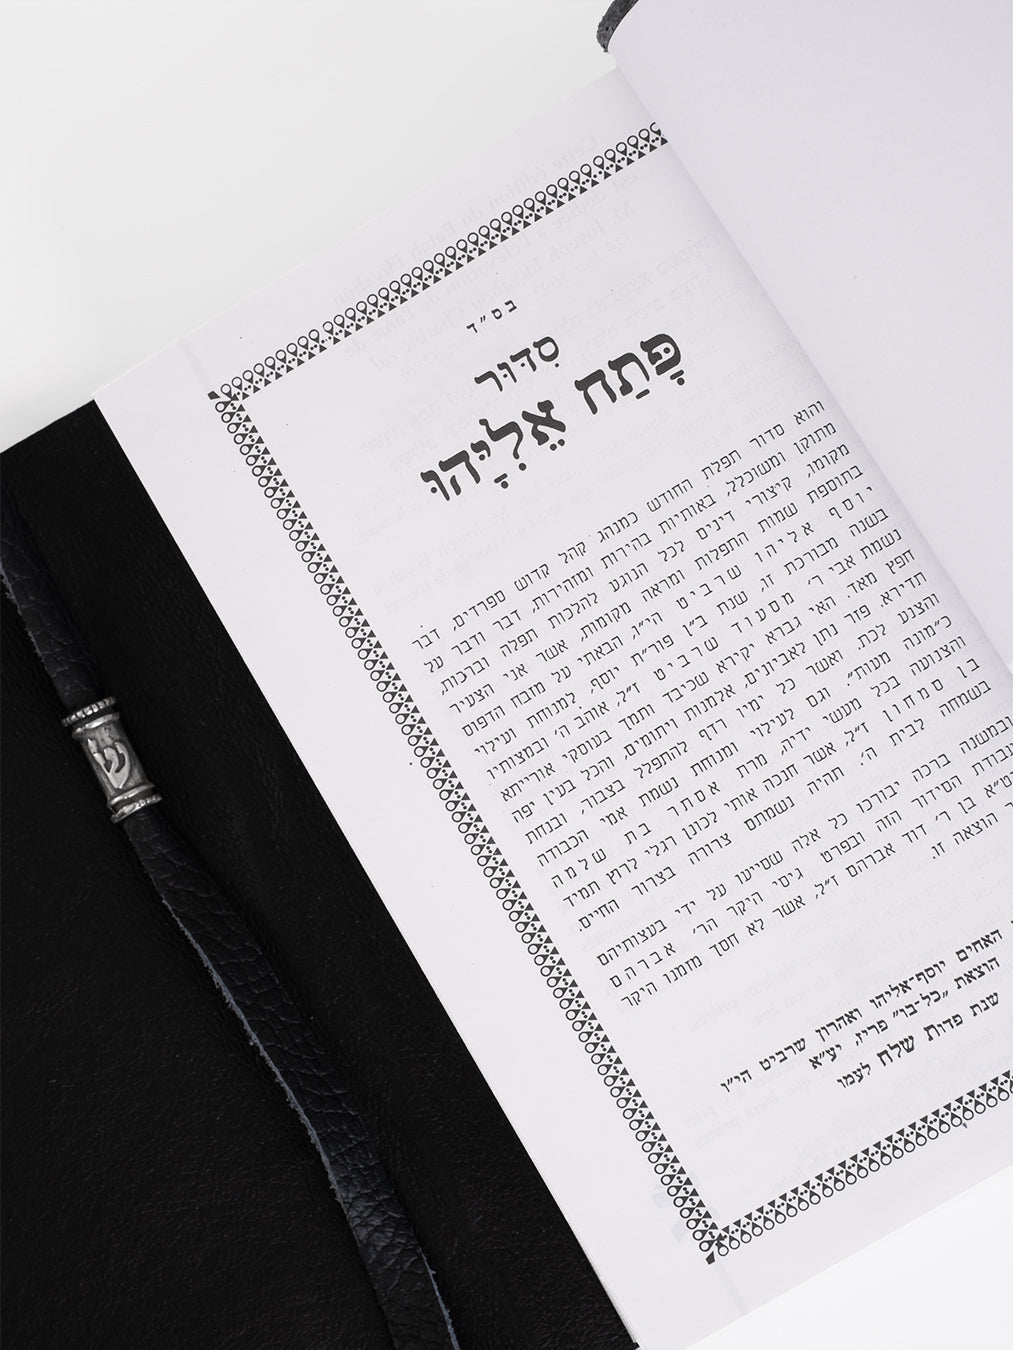 בס״ד
סִדּוּר
פָּתַח אֵלִיָּהוּ
והוא סדור תפלת החודש כמנהג קהל קדוש ספרדים, דבר
מתוקן ומשוכלל, באותיות בהירות ומזהירות, דבר ודבר על
מקומו, קיצורי דינים לכל הנוגע להלכות תפלה וברכות,
בתוספת שמות התפלות ומראה מקומות, אשר אני הצעיר
יוסף אליהו שרביט הי״ו, הבאתי על מזבח הדפוס
בשנה מבורכת זו, שנת ב״ן פור״ת יוסף, למנוחת ועילוי
נשמת אבי ר׳ מסעוד שרביט ז״ל, אוהב ה׳ ובמצותיו
חפץ מאד. האי גברא יקירא שכיבד ותמך בעוסקי אורייתא
תדירא. פזר נתן לאביונים, אלמנות ויתומים, והכל בעין יפה
והצנע לכת, ואשר כל ימיו רדף להתפלל בצבור, ובנחת
כ״מונה מעות״. וגם לעילוי ומנוחת נשמת אמי הכבודה
והצנועה בכל מעשי ידיה, מרת אסתר בת שלמה
בן סמחון ז״ל, אשר חנכה אותי לכונן רגלי לרוץ תמיד
בשמחה לבית ה׳. תהיה נשמתם צרורה בצרור החיים.
ובמשנה ברכה יבורכו כל אלה שסייעו על ידי בעצותיהם
עבודת הסידור הזה ובפרט גיסי היקר הר׳ אברהם
בן ר׳ דוד אברהם ז״ל, אשר לא חסך מזמנו היקר
הוצאה זו.
האחים יוסף-אליהו ואהרון שרביט הי״ו
הוצאת ״כל-בו״ פריז, יע״א
שנת פדות שלח לעמו
ש